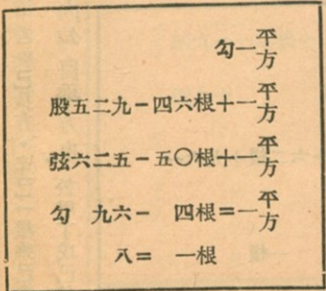 勾一平方
股五二九－四六根＋一平方
弦六二五－五〇根＋一平方
勾　九六－　四根＝一平方
八＝　一根